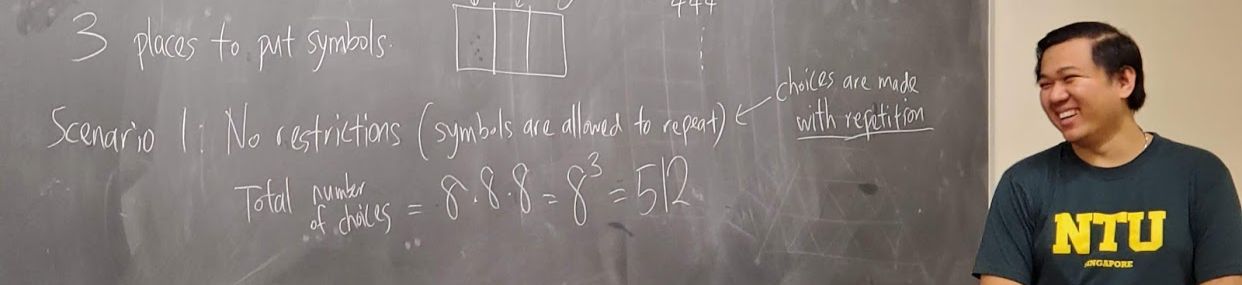 3 places to put symbols.
444
Scenario 1: No restrictions (symbols are allowed to repeat) ← choices are made
with repetition
Total number
of choices = 8·8·8 = 8³ = 512
NTU
SINGAPORE